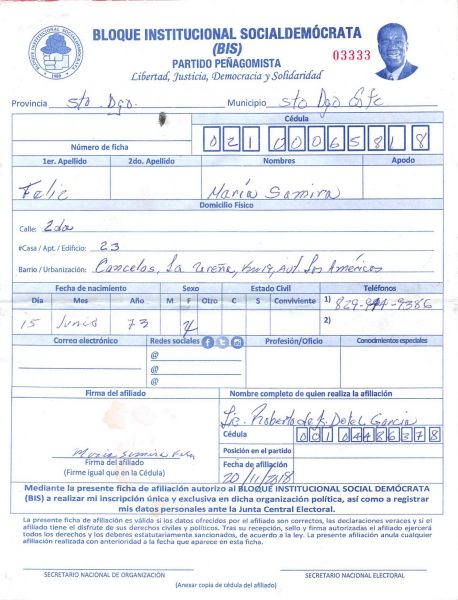 BLOQUE INSTITUCIONAL SOCIALDEMÓCRATA
(BIS)
PARTIDO PEÑAGOMISTA
03333
Libertad, Justicia, Democracia y Solidaridad
Provincia Sto. Dgo. Municipio Sto Dgo Este
Cédula
Número de ficha
1er. Apellido 2do. Apellido Nombres Apodo
Feliz María Samira
Domicilio Físico
Calle: 2da
#Casa / Apt. / Edificio: 23
Barrio / Urbanización: Cancelos, La Ureña, Km 19, Aut. Las Américas
Fecha de nacimiento Sexo Estado Civil Teléfonos
Día Mes Año M F Otro C S Conviviente 1)
15 Junio 73 2)
Correo electrónico Redes sociales Profesión/Oficio Conocimientos especiales
@
@
@
Firma del afiliado Nombre completo de quien realiza la afiliación
Lic. Roberto de A. Dotel Garcia
Cédula
Posición en el partido
Fecha de afiliación
Maria Samira Feliz
Firma del afiliado
(Firme igual que en la Cédula)
20/11/2018
Mediante la presente ficha de afiliación autorizo al BLOQUE INSTITUCIONAL SOCIAL DEMÓCRATA
(BIS) a realizar mi inscripción única y exclusiva en dicha organización política, así como a registrar
mis datos personales ante la Junta Central Electoral.
La presente ficha de afiliación es válida si los datos ofrecidos por el afiliado son correctos, las declaraciones veraces y si el
afiliado tiene el disfrute de sus derechos civiles y políticos. Tras su recepción, sello y firma autorizadas el afiliado ejercerá
todos los derechos y los deberes estatutariamente sancionados, de acuerdo a la ley. La presente afiliación anula cualquier
afiliación realizada con anterioridad a la fecha que aparece en esta ficha.
SECRETARIO NACIONAL DE ORGANIZACIÓN SECRETARIO NACIONAL ELECTORAL
(Anexar copia de cédula del afiliado)